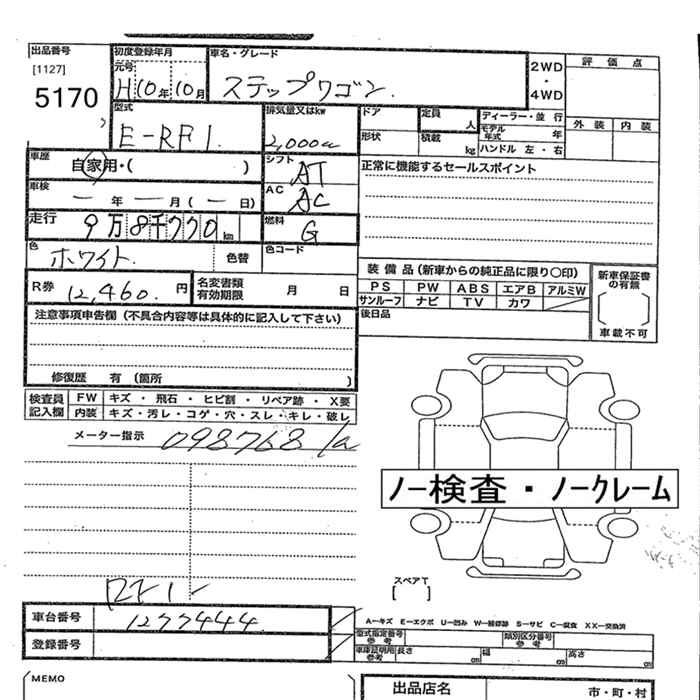 出品番号 初度登録年月 車名・グレード 2WD・4WD 評価点
[1127] 元号
5170 H10年10月 ステップワゴン.
型式 排気量又はkw ドア 定員 人 ディーラー・並行 外装 内装
E-RF1. 2,000cc 形状 積載 kg モデル年式 年
ハンドル 左・右
車歴 自家用・( ) シフト AT 正常に機能するセールスポイント
車検 ー年ー月(ー日) AC AC
走行 9万8千770km 燃料 G
色 ホワイト. 色替 色コード
装備品(新車からの純正品に限り〇印) 新車保証書の有無
R券 12,460.円 名変書類有効期限 月 日 PS PW ABS エアB アルミW
サンルーフ ナビ TV カワ 車載不可
注意事項申告欄(不具合内容等は具体的に記入して下さい) 後日品
修復歴 有(箇所 )
検査員記入欄 FW キズ・飛石・ヒビ割・リペア跡・X要
内装 キズ・汚レ・コゲ・穴・スレ・キレ・破レ
メーター指示 098768
ノー検査・ノークレーム
スペアT
[ ]
RF1-
車台番号 1277444.
A－キズ E－エクボ U－凹み W－補修跡 S－サビ C－腐食 XX－交換済
登録番号 型式指定番号 参考 類別区分番号 参考
車庫証明用 参考 長さ cm 幅 cm 高さ cm
MEMO 出品店名 市・町・村